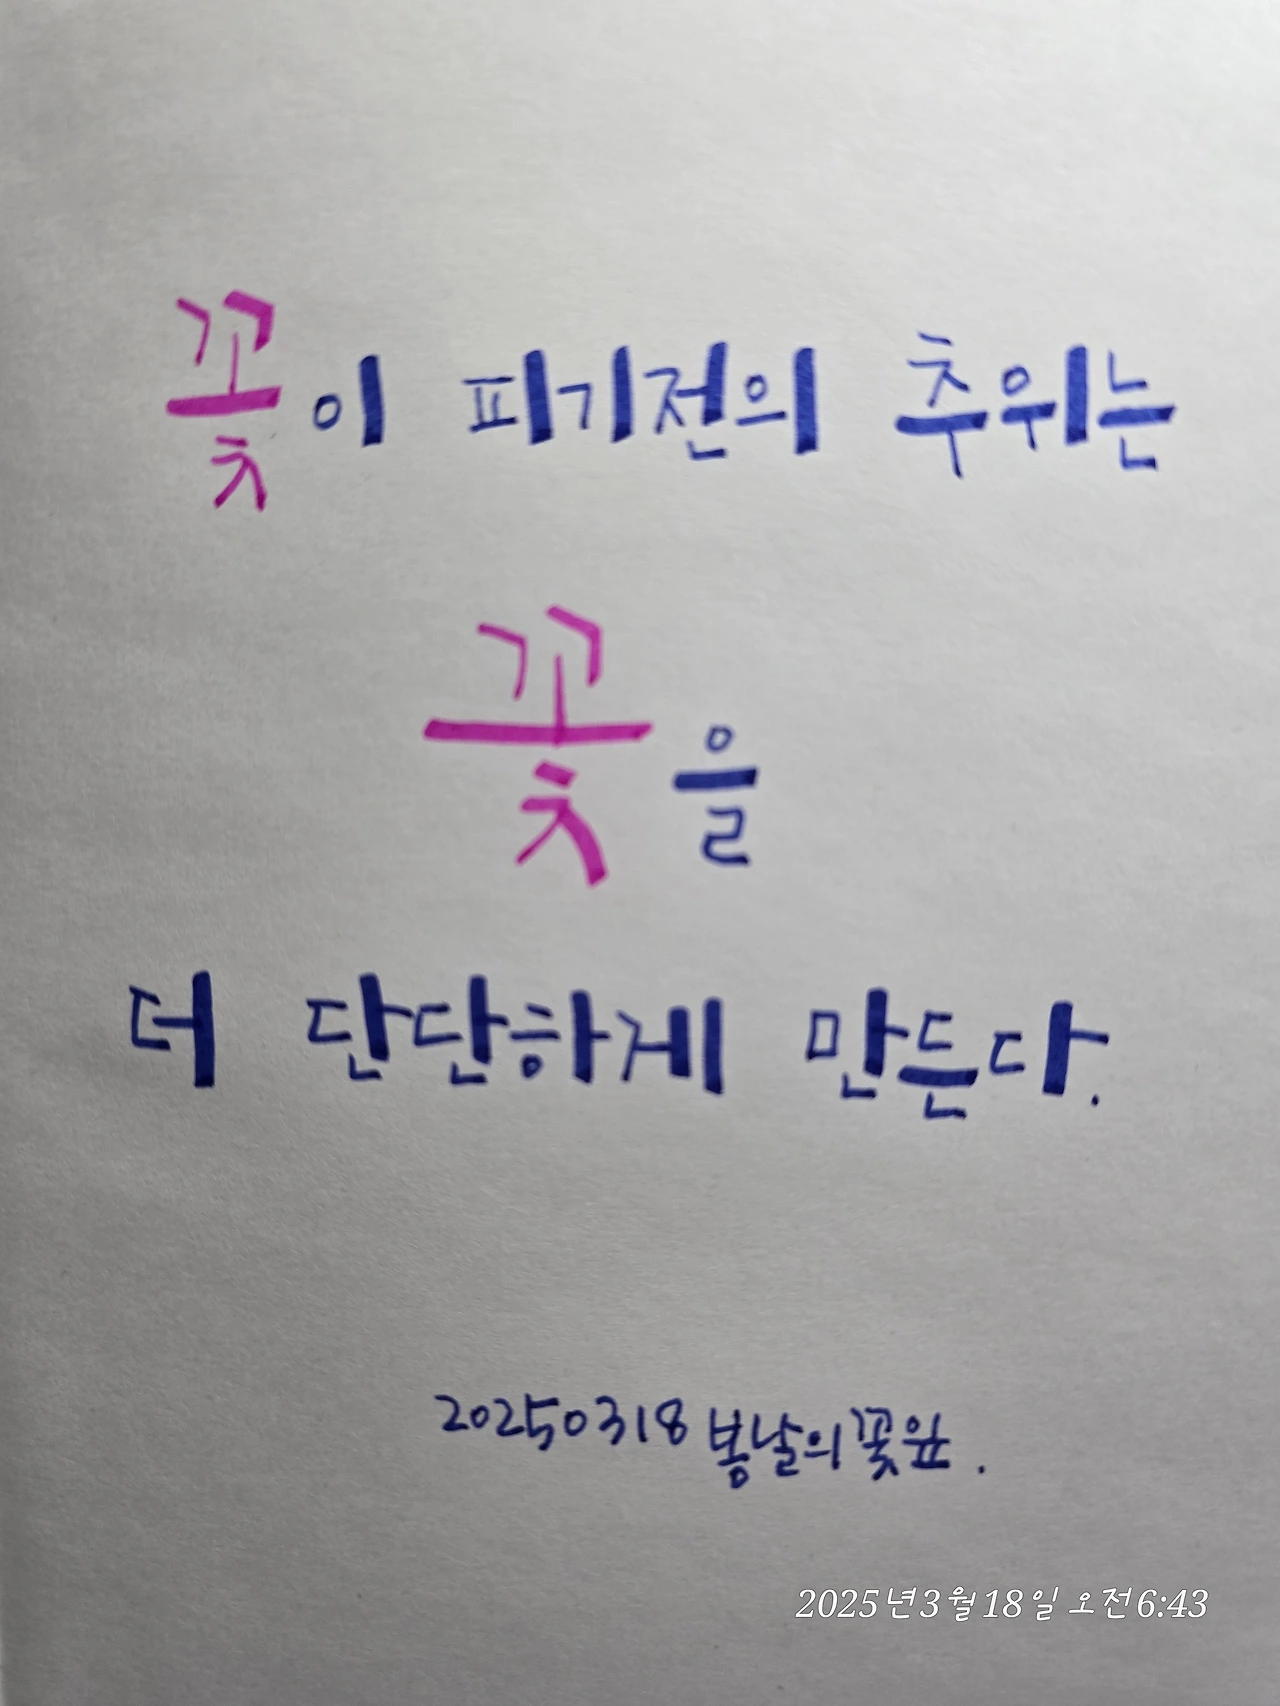 꽃이 피기전의 추위는
꽃을
더 단단하게 만든다.
20250318 봄날의꽃잎.
2025년 3월 18일 오전 6:43